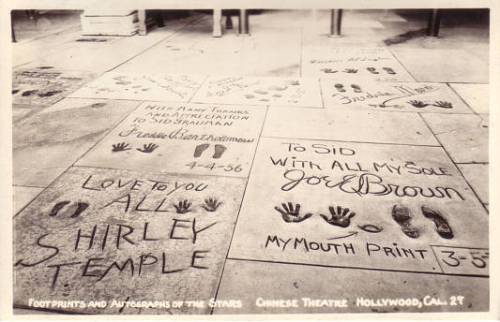 Fredric March
WITH MANY THANKS
AND APPRECIATION
TO SID GRAUMAN
Freddie Bartholomew
4-4-36
TO SID
WITH ALL MY SOLE
Joe E Brown
MY MOUTH PRINT
3-5
LOVE TO YOU
ALL
SHIRLEY
TEMPLE
FOOTPRINTS AND AUTOGRAPHS OF THE STARS CHINESE THEATRE HOLLYWOOD, CAL. 27